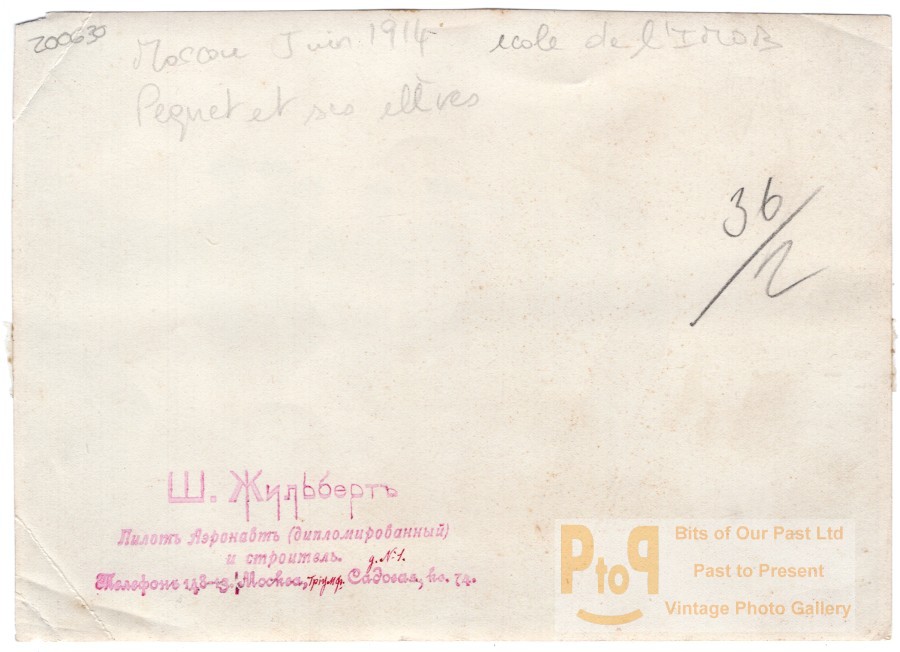 200630
Moscou Juin 1914 école de l'IMOB
Pequet et ses elèves
36/2
Ш. Жильбертъ
Пилотъ Аэронавтъ (дипломированный)
и строитель. д. №1.
Телефонъ 148-19. Москва, Тріумф. Садовая, кв. 74.
PtoP
Bits of Our Past Ltd
Past to Present
Vintage Photo Gallery